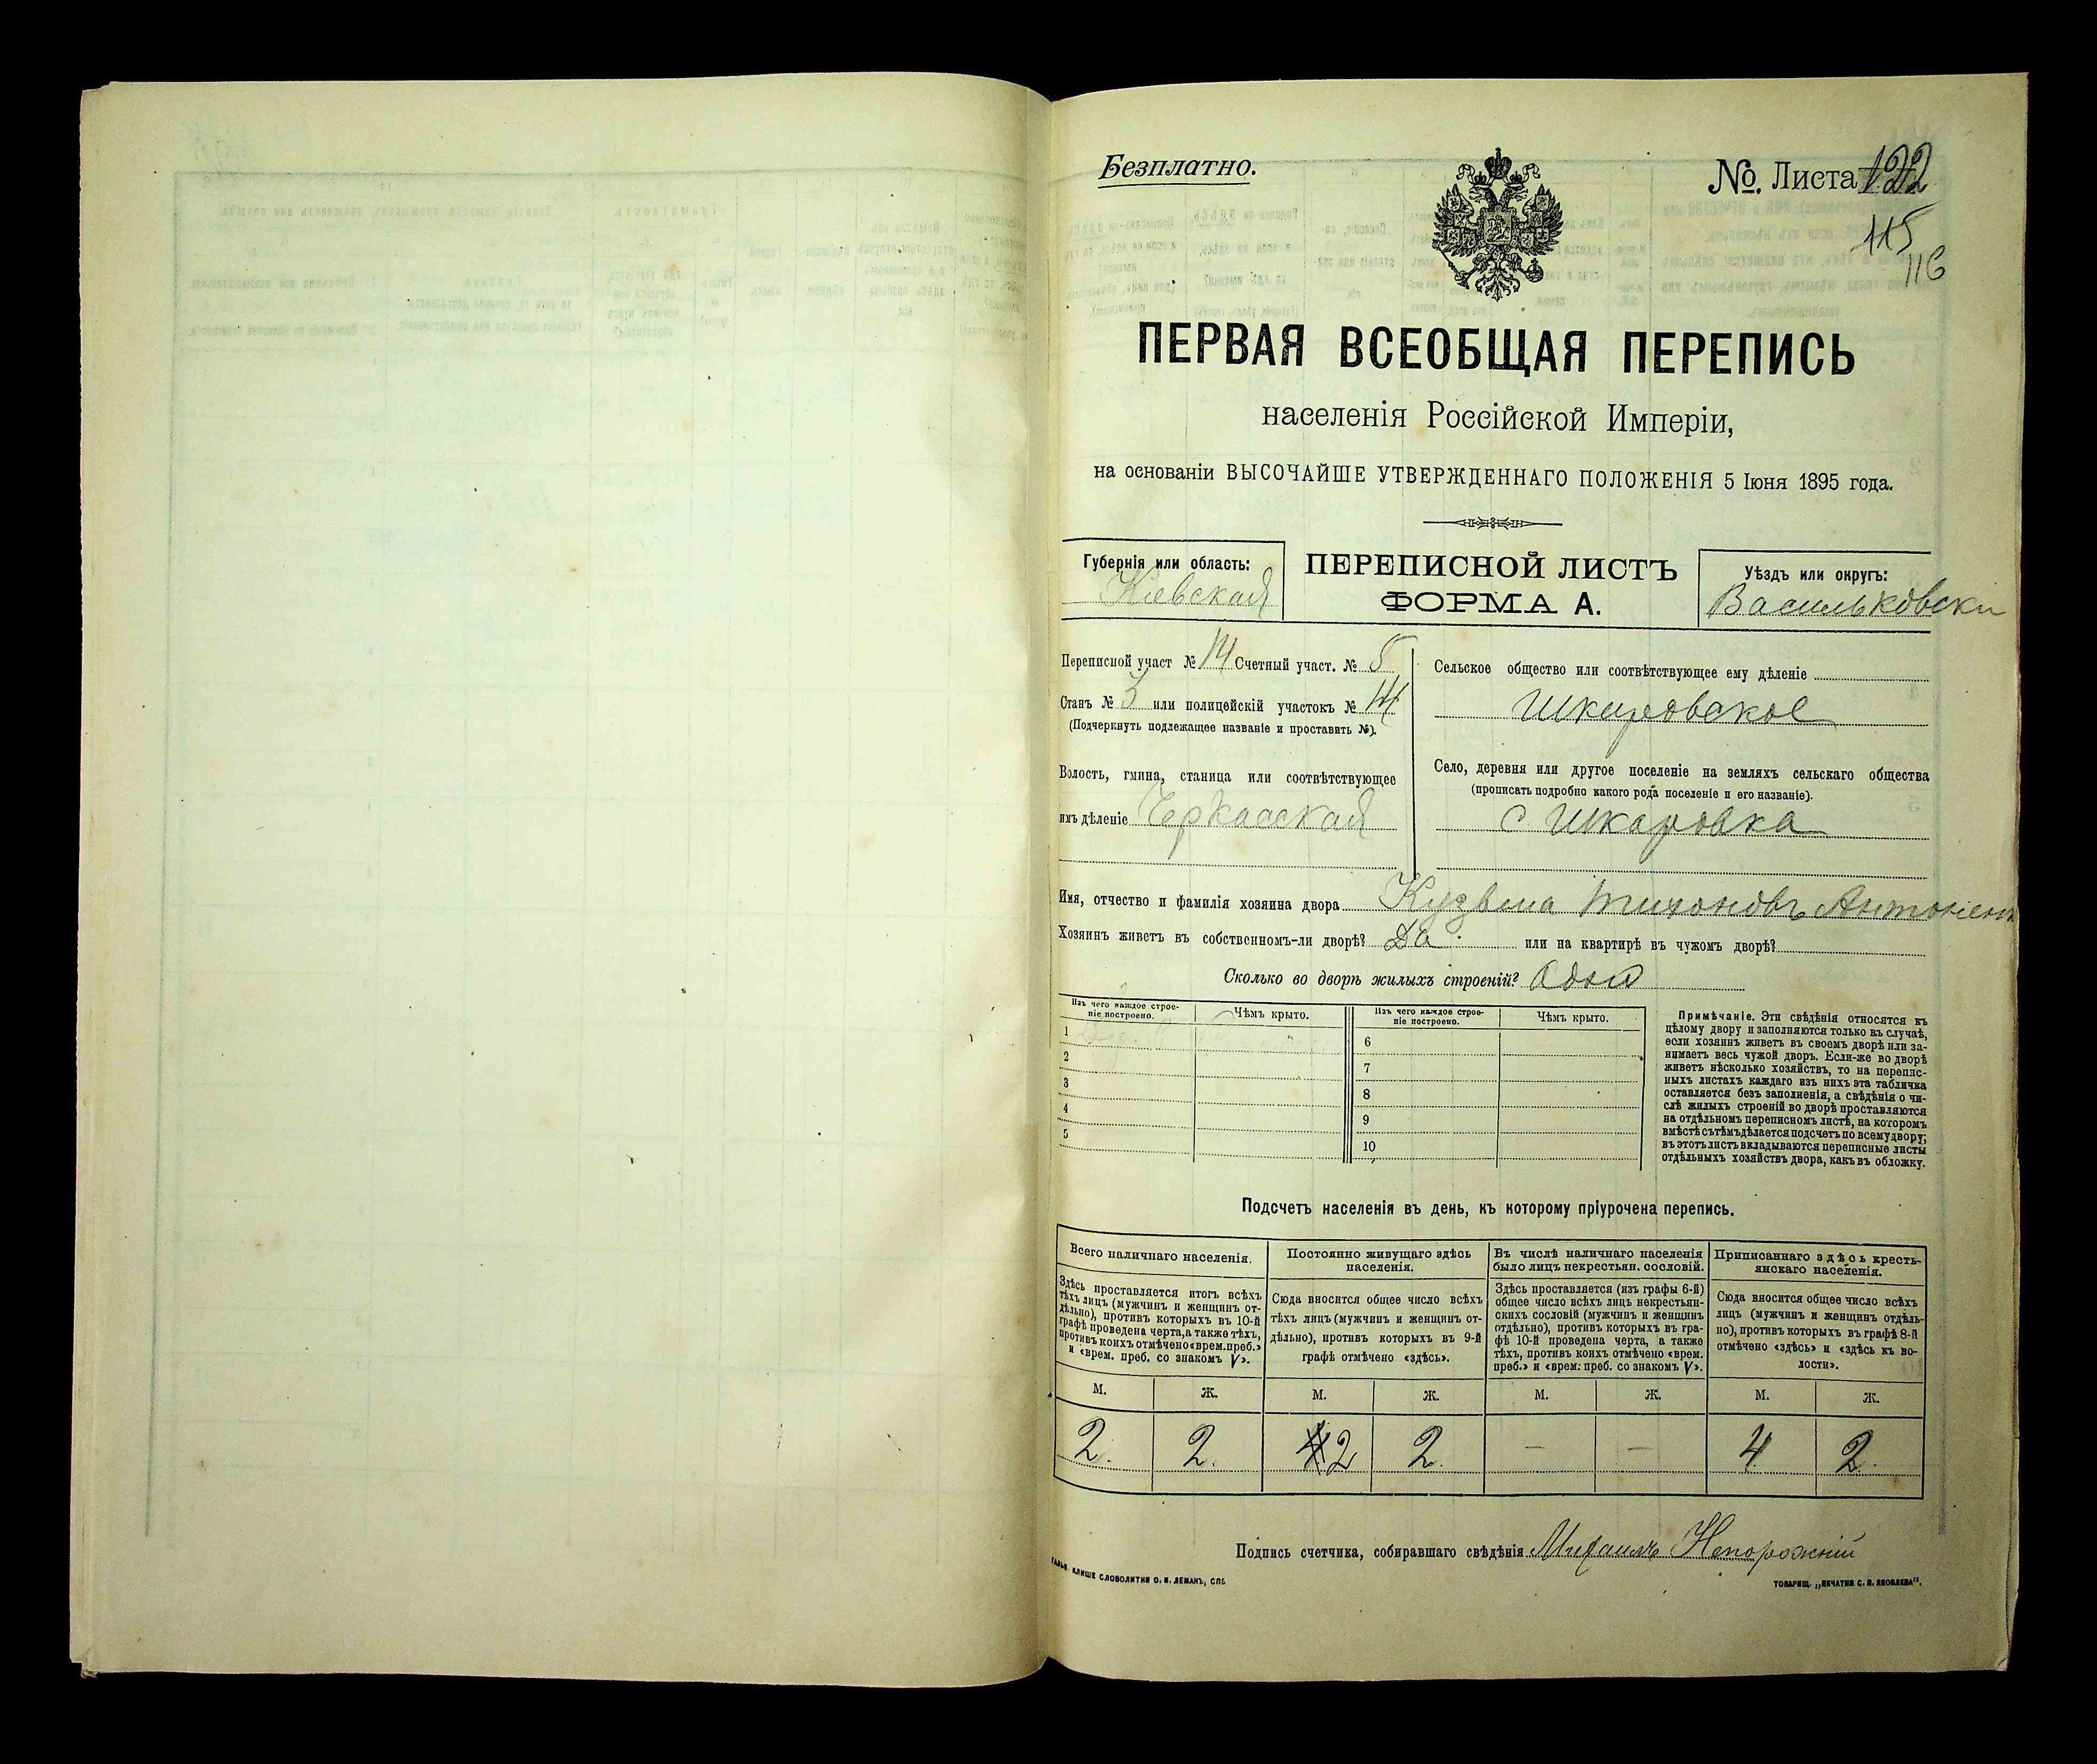 Безплатно.
№. Листа 122
115
116
ПЕРВАЯ ВСЕОБЩАЯ ПЕРЕПИСЬ
населенія Россійской Имперіи,
на основаніи ВЫСОЧАЙШЕ УТВЕРЖДЕННАГО ПОЛОЖЕНІЯ 5 Іюня 1895 года.
Губернія или область:
Кіевская
ПЕРЕПИСНОЙ ЛИСТЪ
ФОРМА А.
Уѣздъ или округъ:
Васильковски
Переписной участ № 14 Счетный участ. № 5
Станъ № 3 или полицейскій участокъ №
(Подчеркнуть подлежащее названіе и проставить №).
Волость, гмина, станица или соотвѣтствующее
имъ дѣленіе Черкасская
Сельское общество или соотвѣтствующее ему дѣленіе
Шкаровское
Село, деревня или другое поселеніе на земляхъ сельскаго общества
(прописать подробно какого рода поселеніе и его названіе).
с Шкаровка
Имя, отчество и фамилія хозяина двора Кузьма Тихоновъ Антоненк
Хозяинъ живетъ въ собственномъ-ли дворѣ? Да. или на квартирѣ въ чужомъ дворѣ?
Сколько во дворѣ жилыхъ строеній?
Изъ чего каждое строе-
ніе построено.
Чѣмъ крыто.
Изъ чего каждое строе-
ніе построено.
Чѣмъ крыто.
1
2
3
4
5
6
7
8
9
10
Примѣчаніе. Эти свѣдѣнія относятся къ
цѣлому двору и заполняются только въ случаѣ,
если хозяинъ живетъ въ своемъ дворѣ или за-
нимаетъ весь чужой дворъ. Если-же во дворѣ
живетъ нѣсколько хозяйствъ, то на перепис-
ныхъ листахъ каждаго изъ нихъ эта табличка
оставляется безъ заполненія, а свѣдѣнія о чи-
слѣ жилыхъ строеній во дворѣ проставляются
на отдѣльномъ переписномъ листѣ, на которомъ
вмѣстѣ съ тѣмъ дѣлается подсчетъ по всему двору;
въ этотъ листъ вкладываются переписные листы
отдѣльныхъ хозяйствъ двора, какъ въ обложку.
Подсчетъ населенія въ день, къ которому пріурочена перепись.
Всего наличнаго населенія.
Здѣсь проставляется итогъ всѣхъ
тѣхъ лицъ (мужчинъ и женщинъ от-
дѣльно), противъ которыхъ въ 10-й
графѣ проведена черта, а также тѣхъ,
противъ коихъ отмѣчено «врем. преб.»
и «врем. преб. со знакомъ V».
Постоянно живущаго здѣсь
населенія.
Сюда вносится общее число всѣхъ
тѣхъ лицъ (мужчинъ и женщинъ от-
дѣльно), противъ которыхъ въ 9-й
графѣ отмѣчено «здѣсь».
Въ числѣ наличнаго населенія
было лицъ некрестьян. сословій.
Здѣсь проставляется (изъ графы 6-й)
общее число всѣхъ лицъ некрестьян-
скихъ сословій (мужчинъ и женщинъ
отдѣльно), противъ которыхъ въ гра-
фѣ 10-й проведена черта, а также
тѣхъ, противъ коихъ отмѣчено «врем.
преб.» и «врем. преб. со знакомъ V».
Приписаннаго здѣсь кресть-
янскаго населенія.
Сюда вносится общее число всѣхъ
лицъ (мужчинъ и женщинъ отдѣль-
но), противъ которыхъ въ графѣ 8-й
отмѣчено «здѣсь» и «здѣсь къ во-
лости».
М. Ж. М. Ж. М. Ж. М. Ж.
2. 2. 2 2. — — 4 2.
Подпись счетчика, собиравшаго свѣдѣнія Михаилъ Непорожній
КЛИШЕ СЛОВОЛИТНИ О. И. ЛЕМАНЪ, СПБ
ТОВАРИЩ. „ПЕЧАТНЯ С. П. ЯКОВЛЕВА".